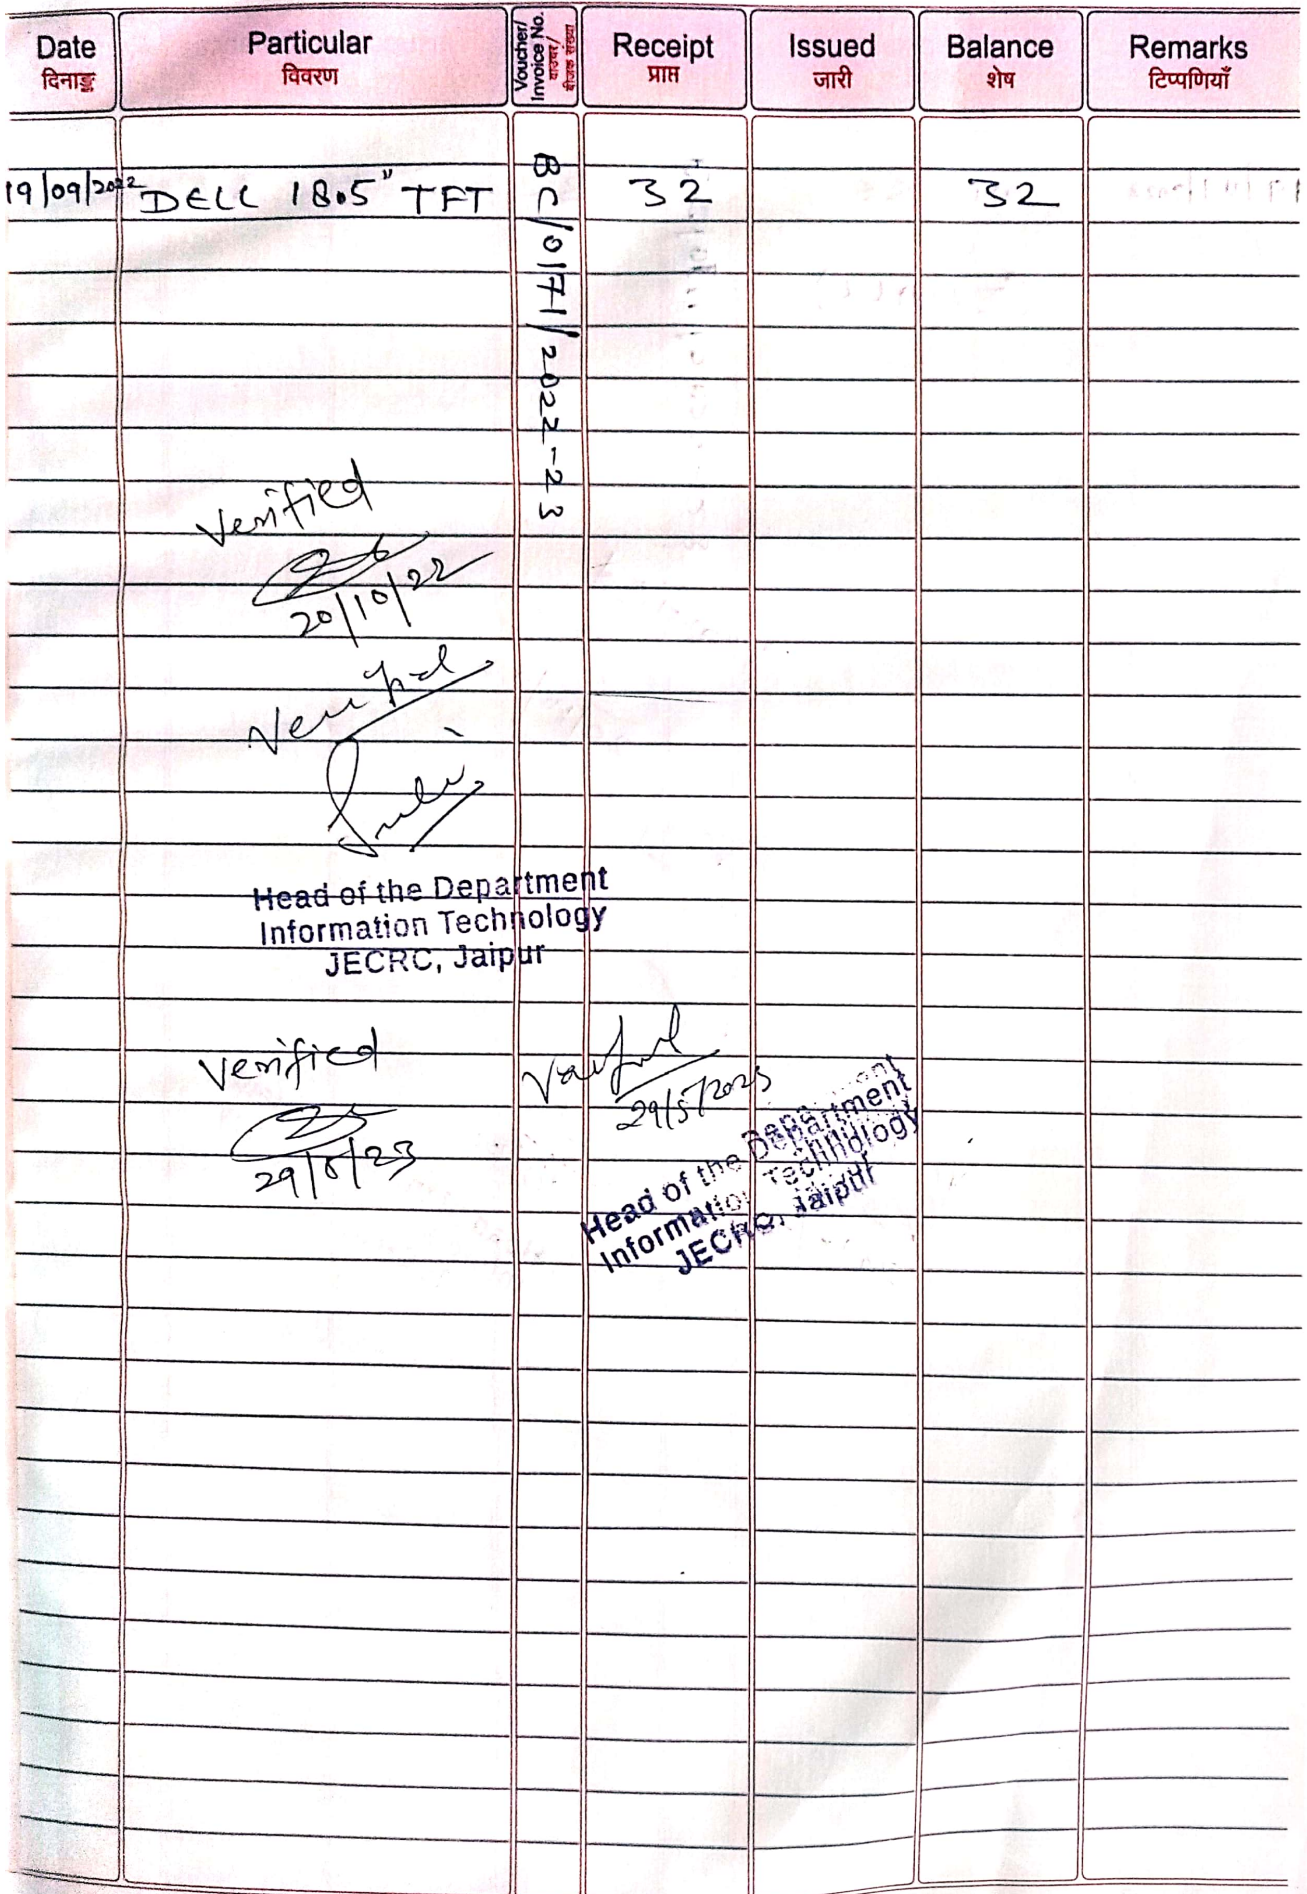 Date
दिनाङ्क
Particular
विवरण
Voucher/
Invoice No.
वाउचर/
बीजक संख्या
Receipt
प्राप्त
Issued
जारी
Balance
शेष
Remarks
टिप्पणियाँ
19/09/2022 DELL 18.5" TFT BC/0171/2022-23 32 32
Verified
20/10/22
Head of the Department
Information Technology
JECRC, Jaipur
Verified
29/5/23
29/5/2023
Head of the Department
Information Technology
JECRC, Jaipur